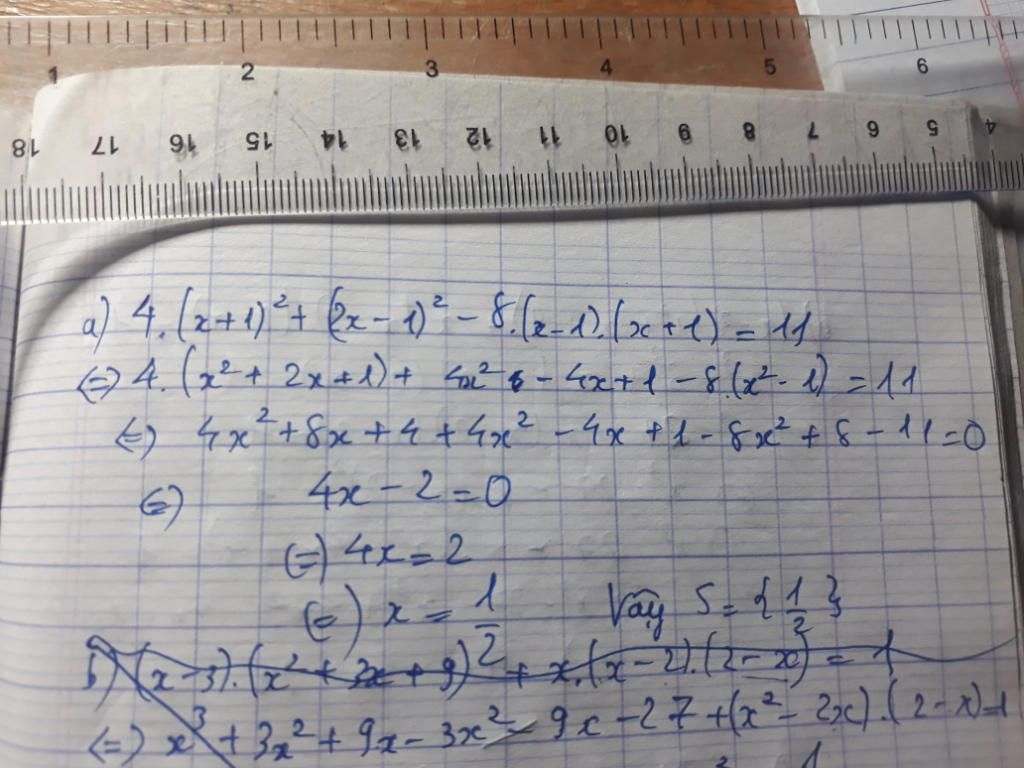 1 2 3 4 5 6
18 17 16 15 14 13 12 11 10 9 8 7 6 5 4
a) 4.(x+1)² + (2x-1)² - 8.(x-1).(x+1) = 11
(=) 4.(x² + 2x+1) + 4x² - 4x+1 - 8.(x²-1) = 11
(=) 4x² + 8x + 4 + 4x² - 4x + 1 - 8x² + 8 - 11 = 0
(=) 4x - 2 = 0
(=) 4x = 2
(=) x = 1/2 Vậy S = {1/2}
b) (x-3).(x² + 3x + 9) + x.(x-2).(2-x) = 1
(=) x³ + 3x² + 9x - 3x² - 9x - 27 + (x² - 2x).(2-x)=1